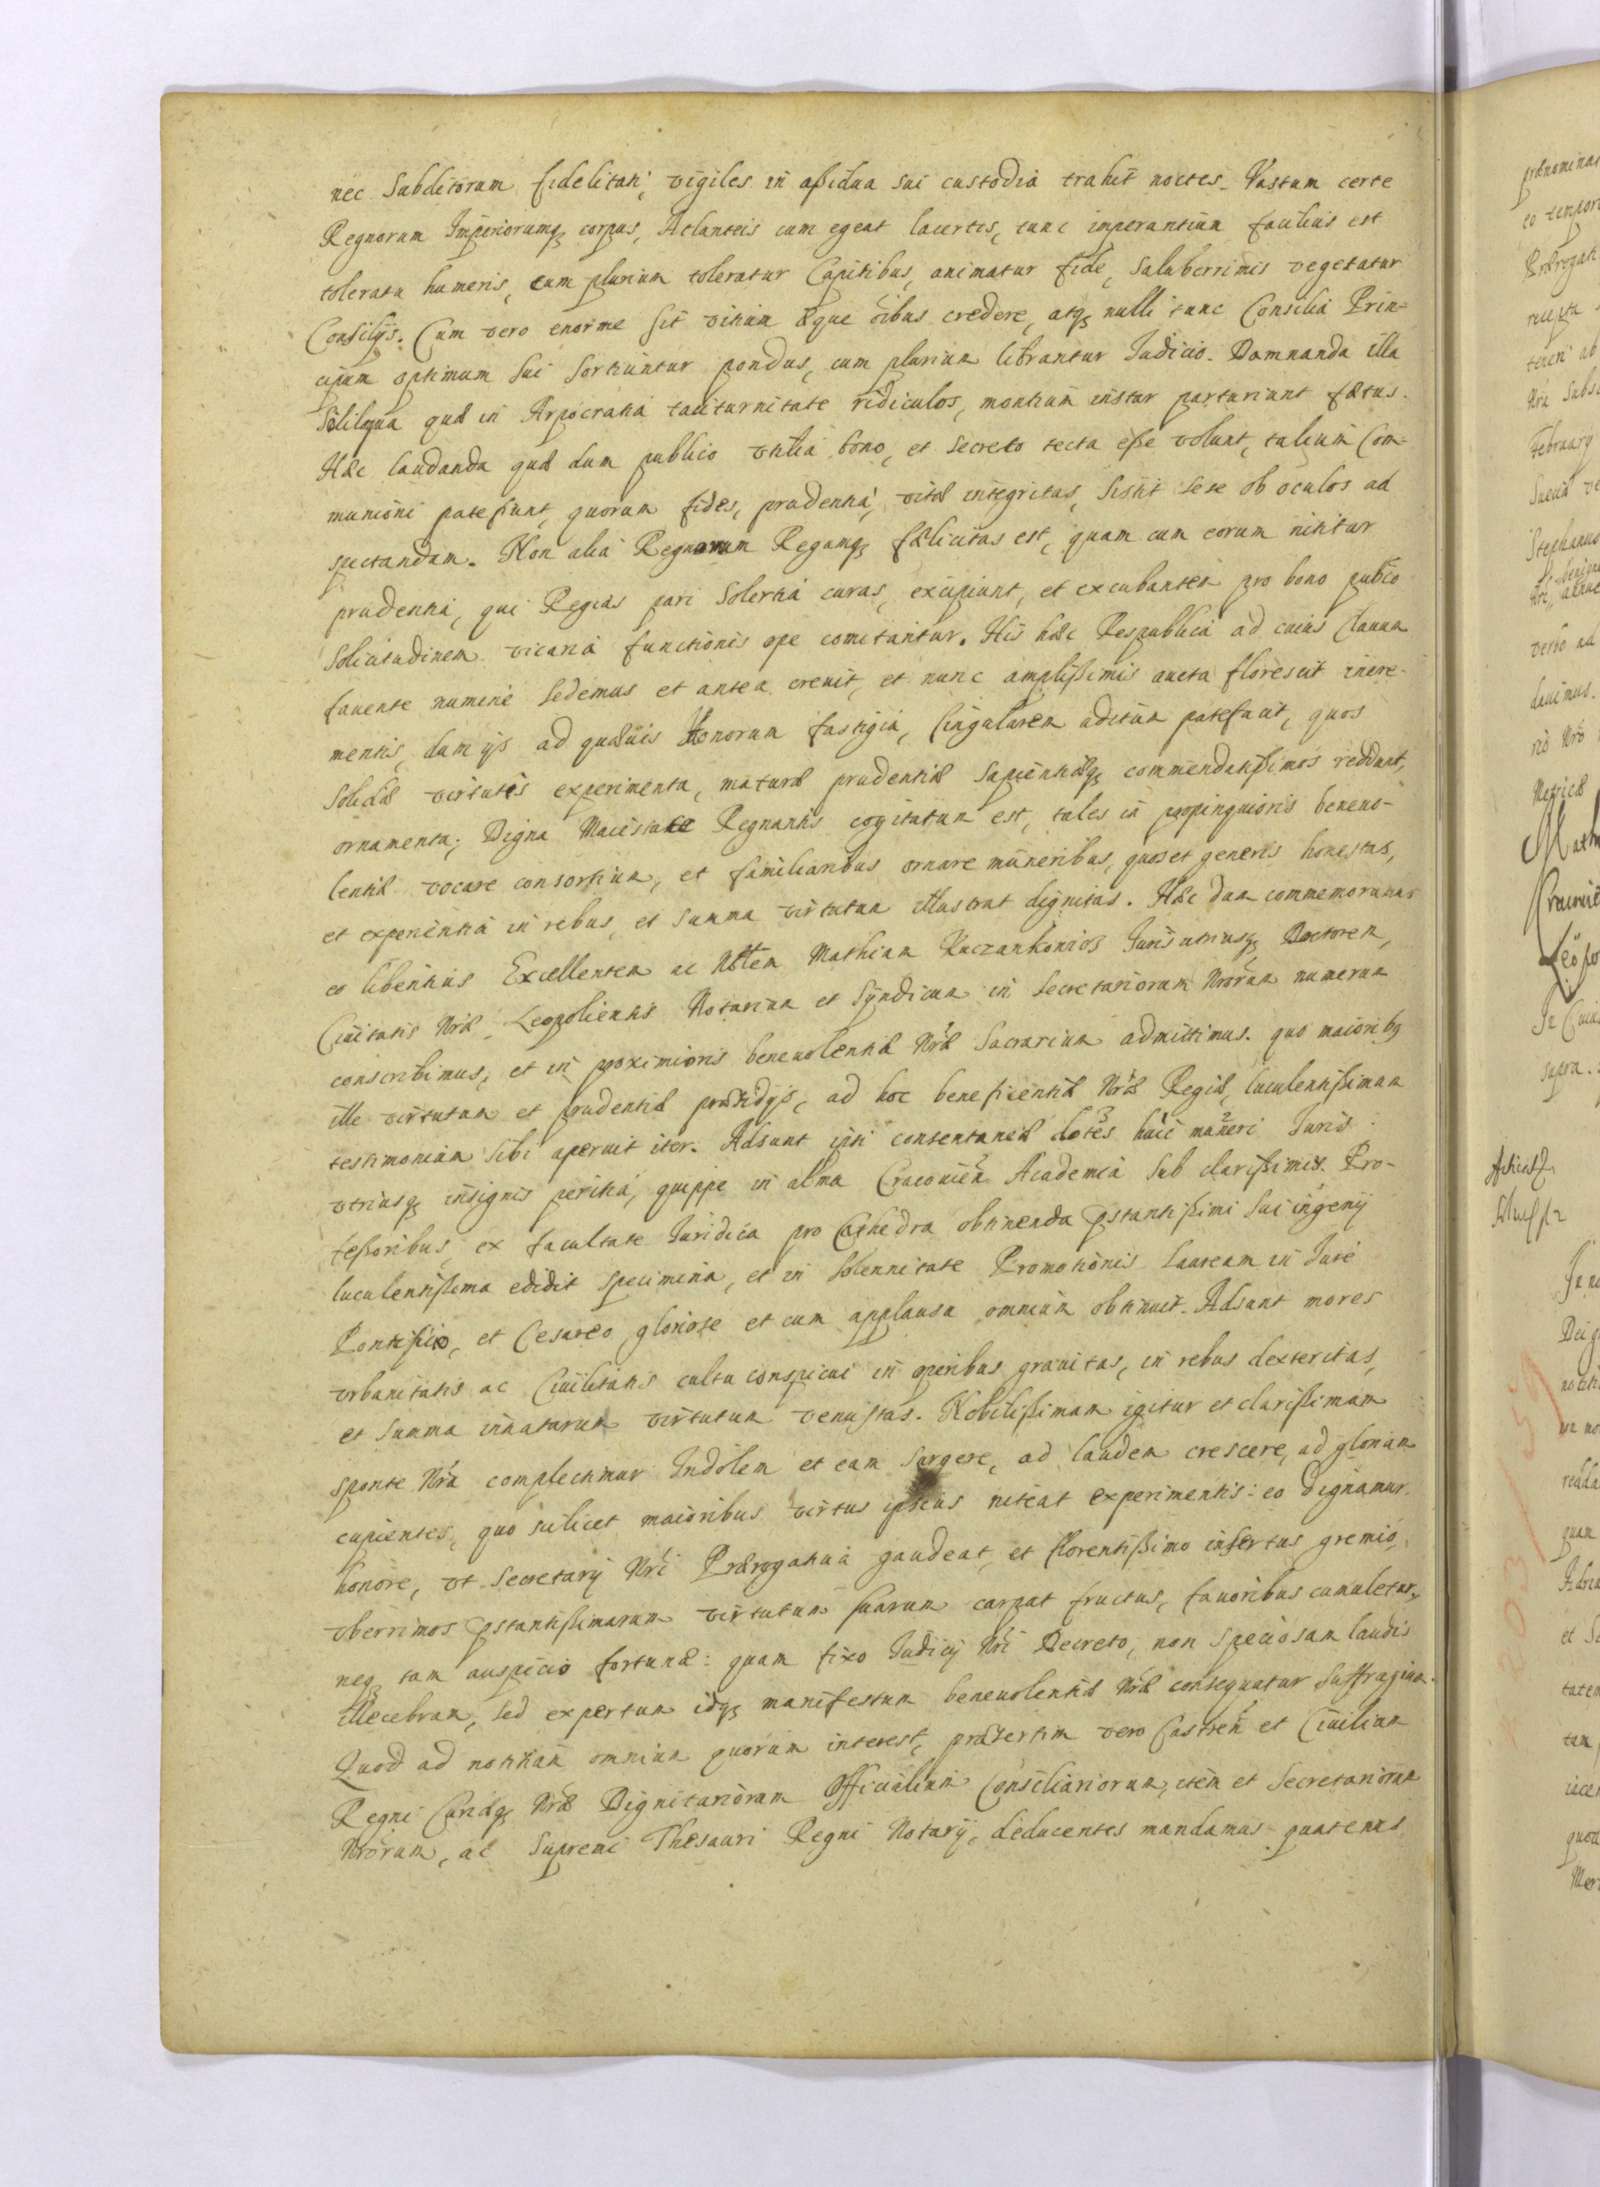 nec Subditorum fidelitati, vigiles in aßidua sui custodia trahit noctes. Vastum certe
Regnorum Imperiorumq; corpus, Atlanteis cum egeat lacertis, tunc imperantium facilius est
toleratu humeris, cum plurium toleratur Capitibus, animatur fide, Saluberrimis vegetatur
Consilijs. Cum vero enorme sit vitium æque oibus credere, atq; nulli tunc Consilia Prin-
cipum optimum sui Sortiuntur pondus, cum plurium librantur Iudicio. Damnanda illa
Soliloqua quæ in Arpocratia taciturnitate ridiculos, montium instar parturiunt fætus.
Hæc laudanda quæ dum publico vtilia bono, et secreto tecta eße volunt, talium Com-
munioni patefiunt, quorum fides, prudentia, vitæ integritas, Sistit sese ob oculos ad
spectandum. Non alia Regnorum Regumq; fælicitas est, quam cum eorum nititur
prudentia, qui Regias pari Solertia curas, excipiunt, et excubantem pro bono publico
Solicitudinem vicaria functionis ope comitantur. His hæc Respublica ad cuius Clauum
fauente numine Sedemus et antea creuit, et nunc amplißimis aucta florescit incre-
mentis, dum ijs ad quæuis Honorum fastigia, singularem aditum patefacit, quos
Solidæ virtutis experimenta, maturæ prudentiæ Sapientiæq; commendatißimos reddunt,
ornamenta; Digna Maiestate Regnantis cogitatum est, tales in propinquioris beneuo-
lentiæ vocare consortium, et familiaribus ornare muneribus, quos et generis honestas,
et experientia in rebus, et Summa virtutum illustrat dignitas. Hæc dum commemoramus
eo libentius Excellentem ac Nblem Mathiam Kuczankowicz Iuris utriusq; Doctorem,
Ciuitatis Nræ Leopoliensis Notarium et Syndicum in Secretariorum Nrorum numerum
conscribimus, et in proximioris beneuolentiæ Nræ Sacrarium admittimus. quo maiorib9
ille virtutum et prudentiæ præsidijs, ad hoc beneficentiæ Nræ Regiæ, luculentißimum
testimonium sibi aperuit iter. Adsunt isti consentaneæ dotes huic muneri Iuris
vtriusq; insignis peritia, quippe in alma Cracouien Academia sub clarißimis Pro-
feßoribus, ex facultate Iuridica pro Cathedra obtinenda pstantißimi sui ingenij
luculentißima edidit specimina, et in Solennitate Promotionis Lauream in Iure
Pontificio, et Cesareo gloriose et cum applausu omnium obtinuit. Adsunt mores
vrbanitatis ac Ciuilitatis cultu conspicui in operibus grauitas, in rebus dexteritas,
et Summa innatarum virtutum venustas. Nobilißimam igitur et clarißimam
sponte Nra complectimur Indolem et eam Surgere, ad laudem crescere, ad gloriam
cupientes, quo scilicet maioribus virtus ipsius niteat experimentis: eo dignamur
honore, vt Secretarij Nri Prærogatiua gaudeat, et florentißimo insertus gremio,
vberrimos pstantißimarum virtutum suarum carpat fructus, fauoribus cumuletur,
neq; tam auspicio fortunæ: quam fixo Iudicij Nri Decreto, non speciosam laudis
illecebram, sed expertum idq; manifestum beneuolentiæ Nræ consequatur Suffragium.
Quod ad notitiam omnium quorum interest, præsertim vero Castren et Ciuilium
Regni Curiæq; Nræ Dignitariorum Officialium Consiliariorum, item et Secretariorum
Nrorum, ac Supremi Thesauri Regni Notarij, deducentes mandamus quatenus